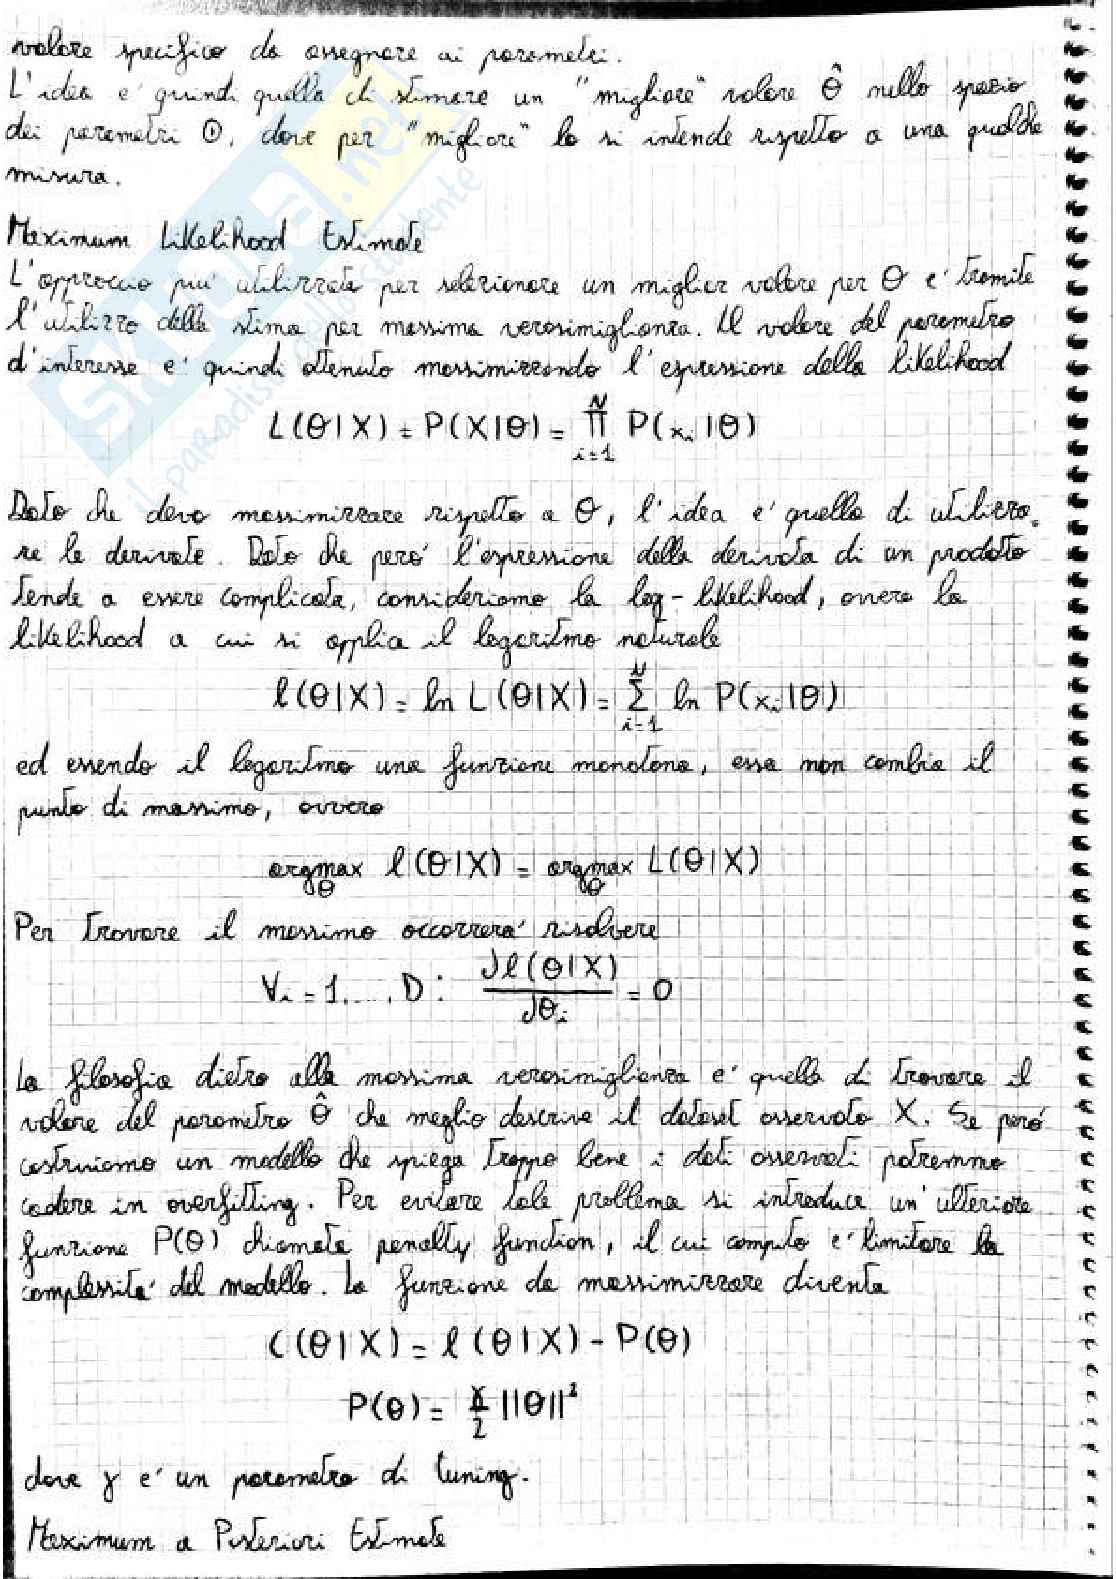 valore specifico da assegnare ai parametri.
L'idea e' quindi quella di stimare un "migliore" valore θ̂ nello spazio
dei parametri Θ, dove per "migliore" lo si intende rispetto a una qualche
misura.
Maximum Likelihood Estimate
L'approccio piu' utilizzato per selezionare un miglior valore per θ e' tramite
l'utilizzo della stima per massima verosimiglianza. Il valore del parametro
d'interesse e' quindi ottenuto massimizzando l'espressione della likelihood
L(θ|X) = P(X|θ) = ∏_{i=1}^{N} P(x_i|θ)
Dato che devo massimizzare rispetto a θ, l'idea e' quella di utilizza-
re le derivate. Dato che pero' l'espressione della derivata di un prodotto
tende a essere complicata, consideriamo la log-likelihood, ovvero la
likelihood a cui si applica il logaritmo naturale
ℓ(θ|X) = ln L(θ|X) = ∑_{i=1}^{N} ln P(x_i|θ)
ed essendo il logaritmo una funzione monotona, essa non cambia il
punto di massimo, ovvero
argmax_θ ℓ(θ|X) = argmax_θ L(θ|X)
Per trovare il massimo occorrera' risolvere
∀i = 1, ..., D : ∂ℓ(θ|X)/∂θ_i = 0
La filosofia dietro alla massima verosimiglianza e' quella di trovare il
valore del parametro θ̂ che meglio descrive il dataset osservato X. Se pero'
costruiamo un modello che spiega troppo bene i dati osservati potremmo
cadere in overfitting. Per evitare tale problema si introduce un'ulteriore
funzione P(θ) chiamata penalty function, il cui compito e' limitare la
complessita' del modello. La funzione da massimizzare diventa
C(θ|X) = ℓ(θ|X) - P(θ)
P(θ) = γ/2 ||θ||²
dove γ e' un parametro di tuning.
Maximum a Posteriori Estimate
skuola.net
il paradiso dello studente